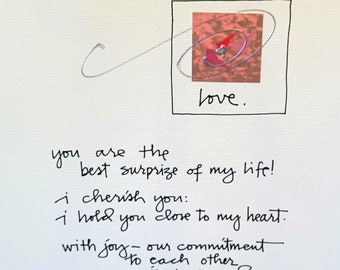 love.
you are the
best surprize of my life!
i cherish you:
i hold you close to my heart.
with joy – our commitment
to each other